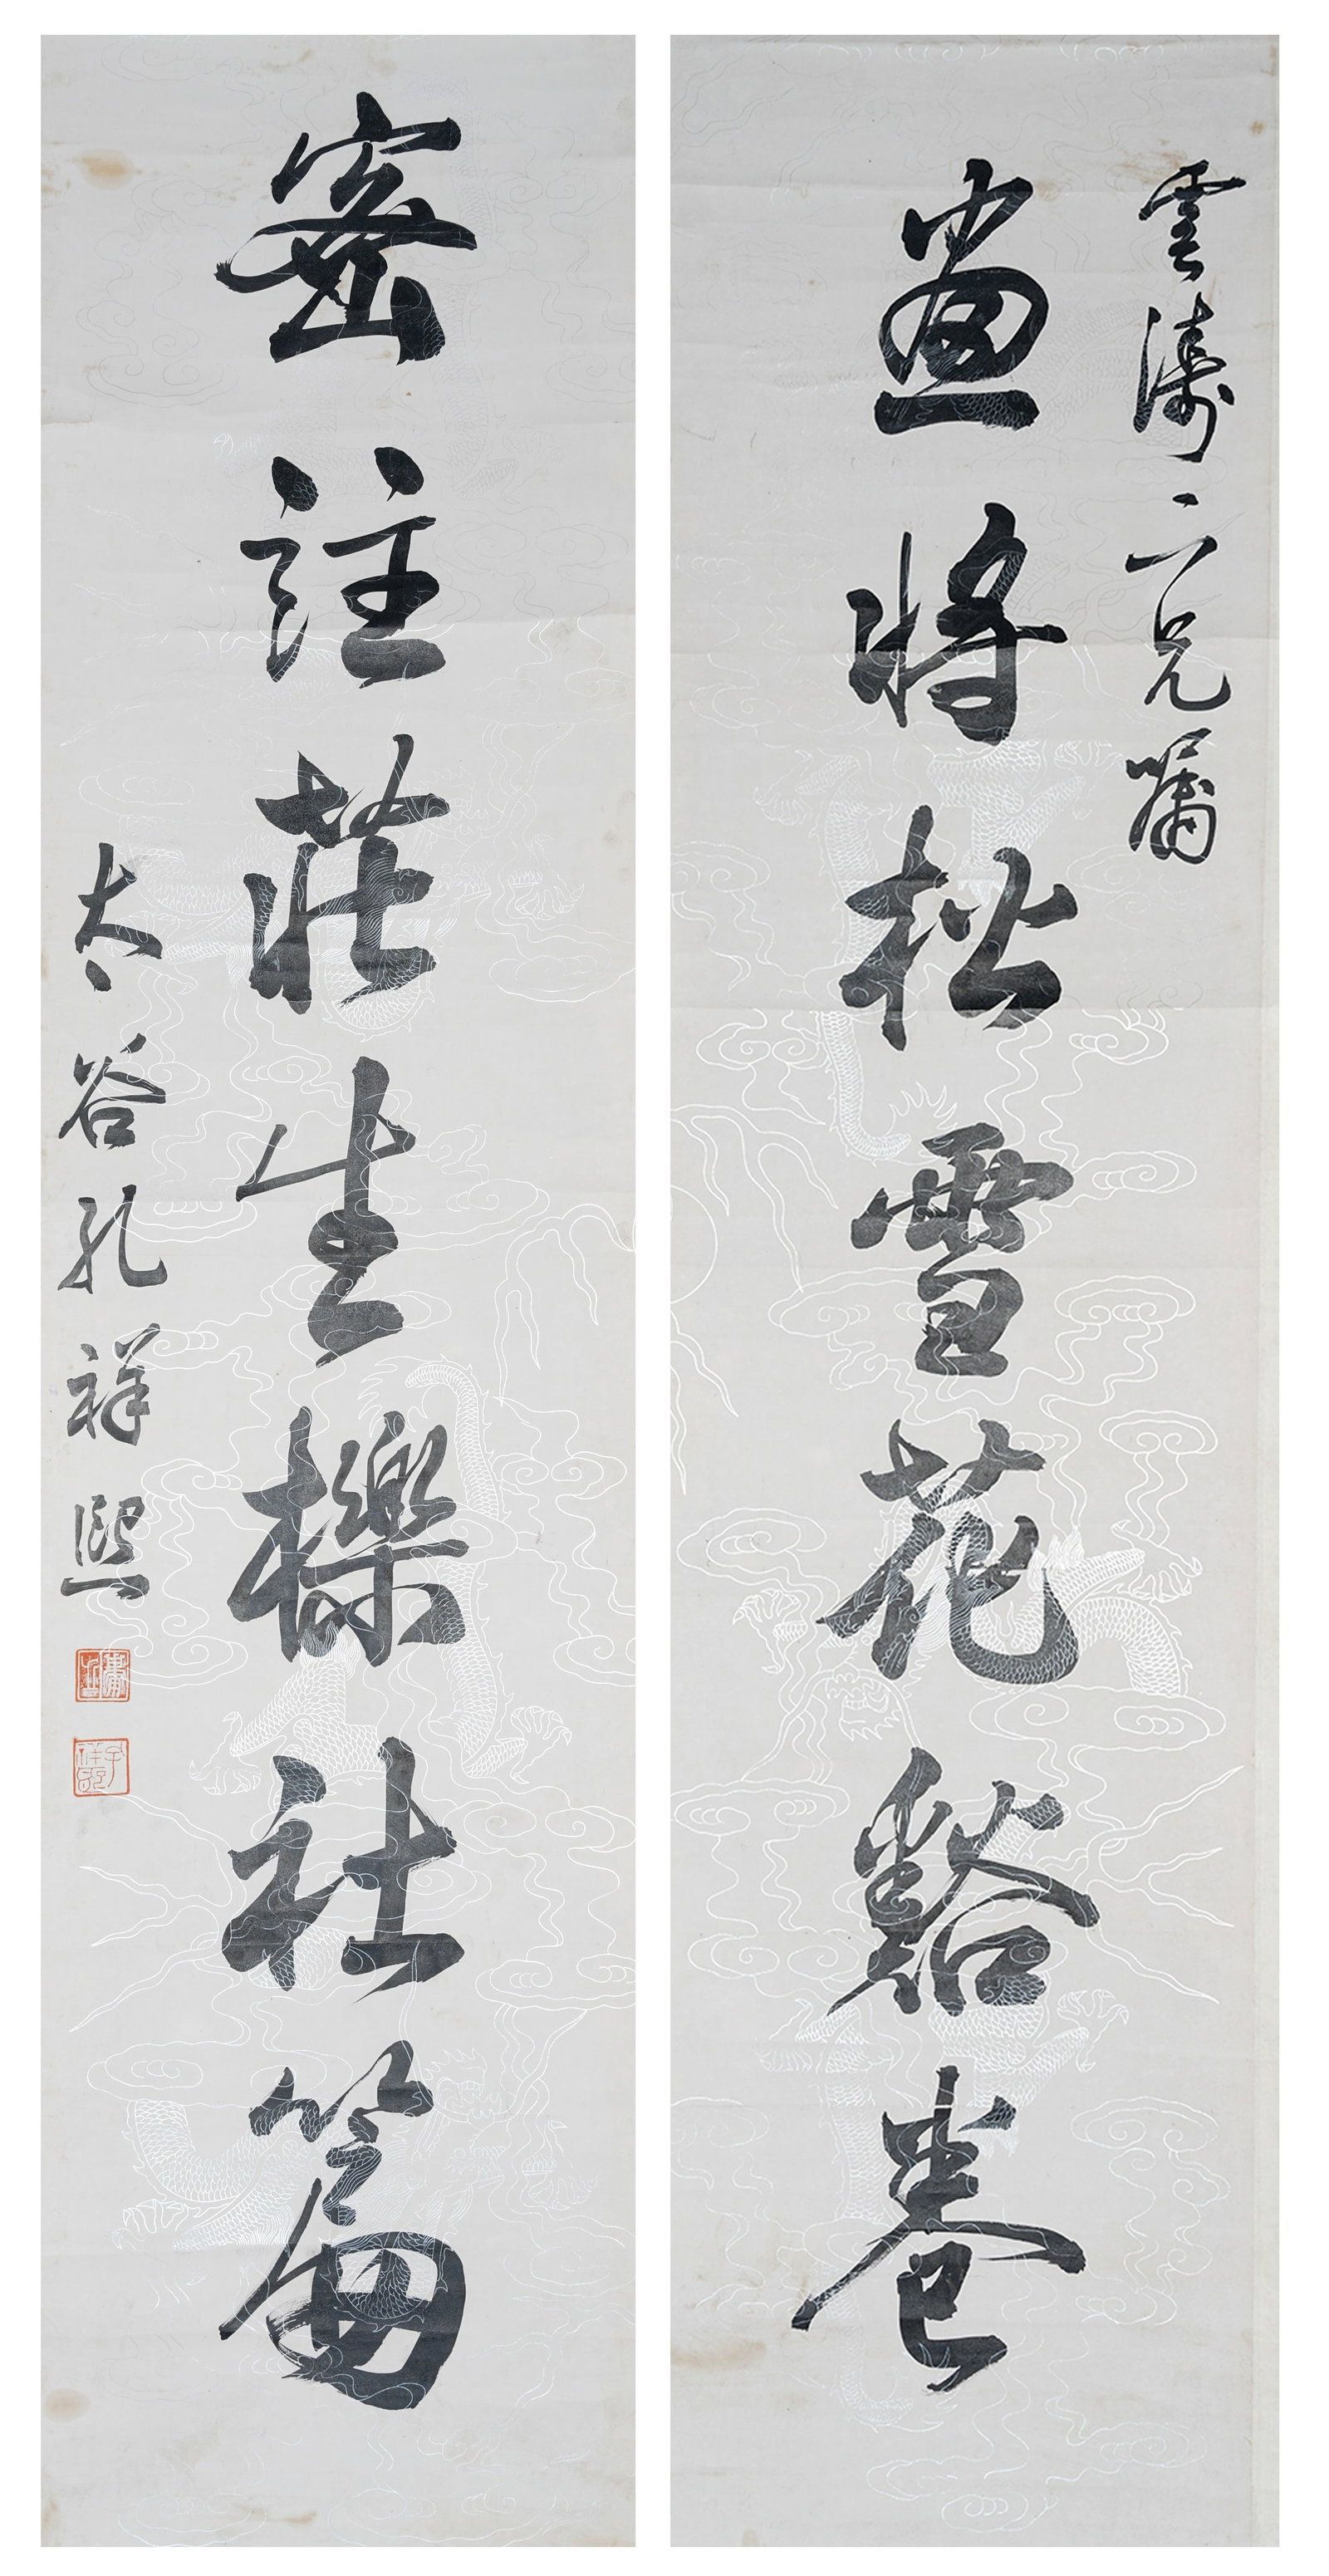 雲濤二兄屬
畫將松雪花谿卷
密註莊生櫟社篇
太谷孔祥熙